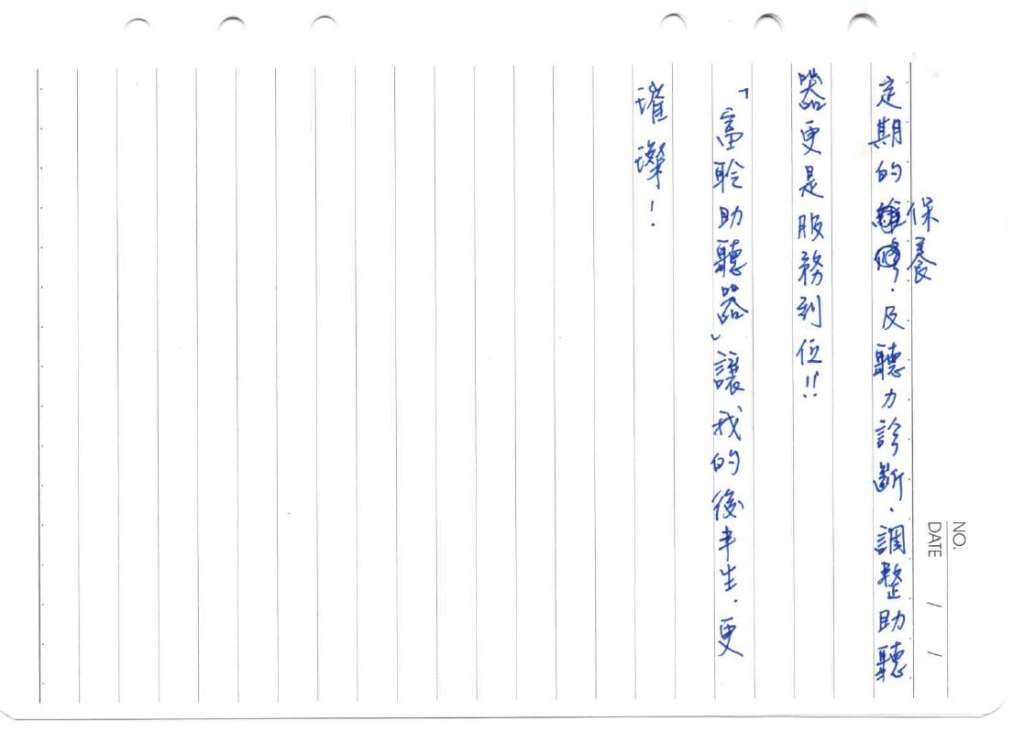 NO.
DATE / /
定期的保養.及聽力診斷.調整助聽
器更是服務到位!!
「富聆助聽器」讓我的後半生.更
璀璨!